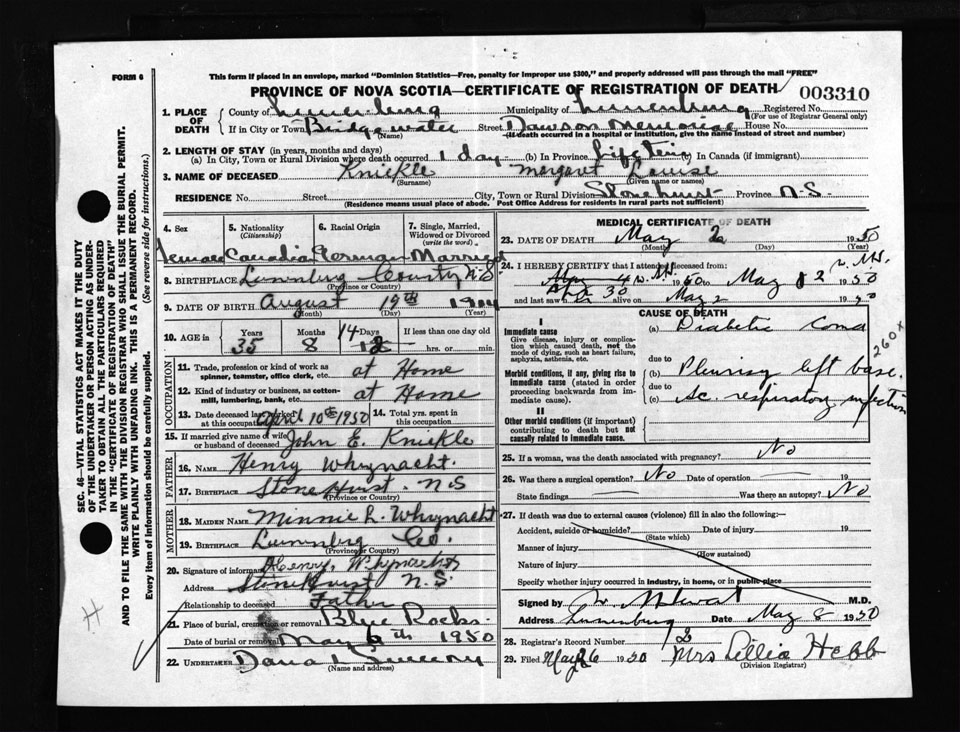 FORM 6
This form if placed in an envelope, marked "Dominion Statistics—Free, penalty for improper use $300," and properly addressed will pass through the mail "FREE"
PROVINCE OF NOVA SCOTIA—CERTIFICATE OF REGISTRATION OF DEATH
003310
1. PLACE OF DEATH
County of Lunenburg Municipality of Lunenburg Registered No.
(For use of Registrar General only)
If in City or Town Bridgewater Street Dawson Memorial House No.
(Name) (If death occurred in a hospital or institution, give the name instead of street and number)
2. LENGTH OF STAY (in years, months and days)
(a) In City, Town or Rural Division where death occurred 1 day (b) In Province Lifetime (c) In Canada (if immigrant)
3. NAME OF DECEASED Knickle Margaret Louise
(Surname) (Given name or names)
RESIDENCE No. Street City, Town or Rural Division Stonehurst Province N.S.
(Residence means usual place of abode. Post Office Address for residents in rural parts not sufficient)
4. Sex 5. Nationality (Citizenship) 6. Racial Origin 7. Single, Married, Widowed or Divorced (write the word)
Female Canadian German Married
8. BIRTHPLACE Lunenburg County N.S
(Province or Country)
9. DATE OF BIRTH August 19th 1914
(Month) (Day) (Year)
10. AGE in Years Months Days If less than one day old
35 8 14 12 hrs. or min.
OCCUPATION
11. Trade, profession or kind of work as spinner, teamster, office clerk, etc. at Home
12. Kind of industry or business, as cotton-mill, lumbering, bank, etc. at Home
13. Date deceased last worked at this occupation April 10th 1950 14. Total yrs. spent in this occupation
15. If married give name of wife or husband of deceased John E. Knickle
FATHER
16. NAME Henry Whynacht.
17. BIRTHPLACE Stone Hurst. N.S
(Province or Country)
MOTHER
18. MAIDEN NAME Minnie L. Whynacht
19. BIRTHPLACE Lunenburg Co.
(Province or Country)
20. Signature of informant Henry Whynacht
Address Stonehurst N.S.
Relationship to deceased Father
21. Place of burial, cremation or removal Blue Rocks.
Date of burial or removal May th 1950
22. UNDERTAKER Sweeny
(Name and address)
MEDICAL CERTIFICATE OF DEATH
23. DATE OF DEATH May 2 1950
(Month) (Day) (Year)
24. I HEREBY CERTIFY that I attended deceased from:
1950 to May 2 1950
and last saw her alive on May 2 1950
CAUSE OF DEATH
I
Immediate cause
Give disease, injury or complication which caused death, not the mode of dying, such as heart failure, asphyxia, asthenia, etc.
(a) Diabetic Coma
260x
due to
Morbid conditions, if any, giving rise to immediate cause (stated in order proceeding backwards from immediate cause).
(b) Pleurisy left base.
due to
(c) Ac. respiratory infection
II
Other morbid conditions (if important) contributing to death but not causally related to immediate cause.
25. If a woman, was the death associated with pregnancy? No
26. Was there a surgical operation? No Date of operation — 19
State findings — Was there an autopsy? No
27. If death was due to external causes (violence) fill in also the following:—
Accident, suicide or homicide? Date of injury 19
(State which)
Manner of injury
(How sustained)
Nature of injury
Specify whether injury occurred in industry, in home, or in public place
Signed by M.D.
Address Lunenburg Date May 8 1950
28. Registrar's Record Number 2
29. Filed May 1950 Mrs Lillia Hebb
(Division Registrar)
SEC. 46—VITAL STATISTICS ACT MAKES IT THE DUTY
OF THE UNDERTAKER OR PERSON ACTING AS UNDER-
TAKER TO OBTAIN ALL THE PARTICULARS REQUIRED
IN THE "CERTIFICATE OF REGISTRATION OF DEATH"
AND TO FILE THE SAME WITH THE DIVISION REGISTRAR WHO SHALL ISSUE THE BURIAL PERMIT.
WRITE PLAINLY WITH UNFADING INK. THIS IS A PERMANENT RECORD.
Every item of information should be carefully supplied. (See reverse side for instructions.)
H